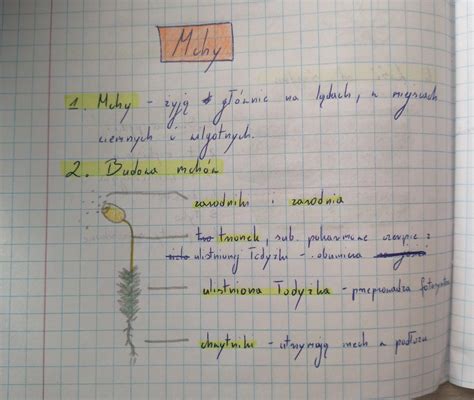 Mchy
1. Mchy - żyją głównie na lądach, w miejscach
ciemnych i wilgotnych.
2. Budowa mchów
zarodniki i zarodnia
trzonek, sub. pokarmowe czerpie z
ulistnionej łodyżki -
ulistniona łodyżka - przeprowadza
chwytniki - utrzymują mech w podłożu